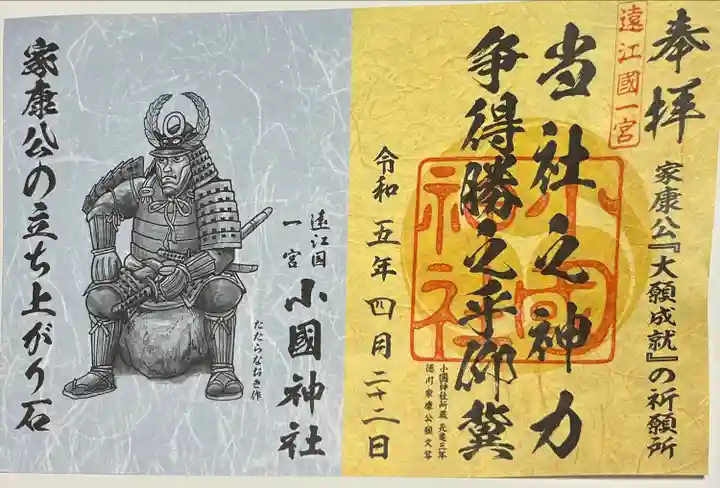 奉拝
遠江國一宮
家康公『大願成就』の祈願所
当社之神力
争得勝之乎仰冀
小國神社
小國神社所蔵 元亀三年
徳川家康公願文写
令和五年四月二十二日
遠江国
一宮
小國神社
たたらなおき作
家康公の立ち上がり石